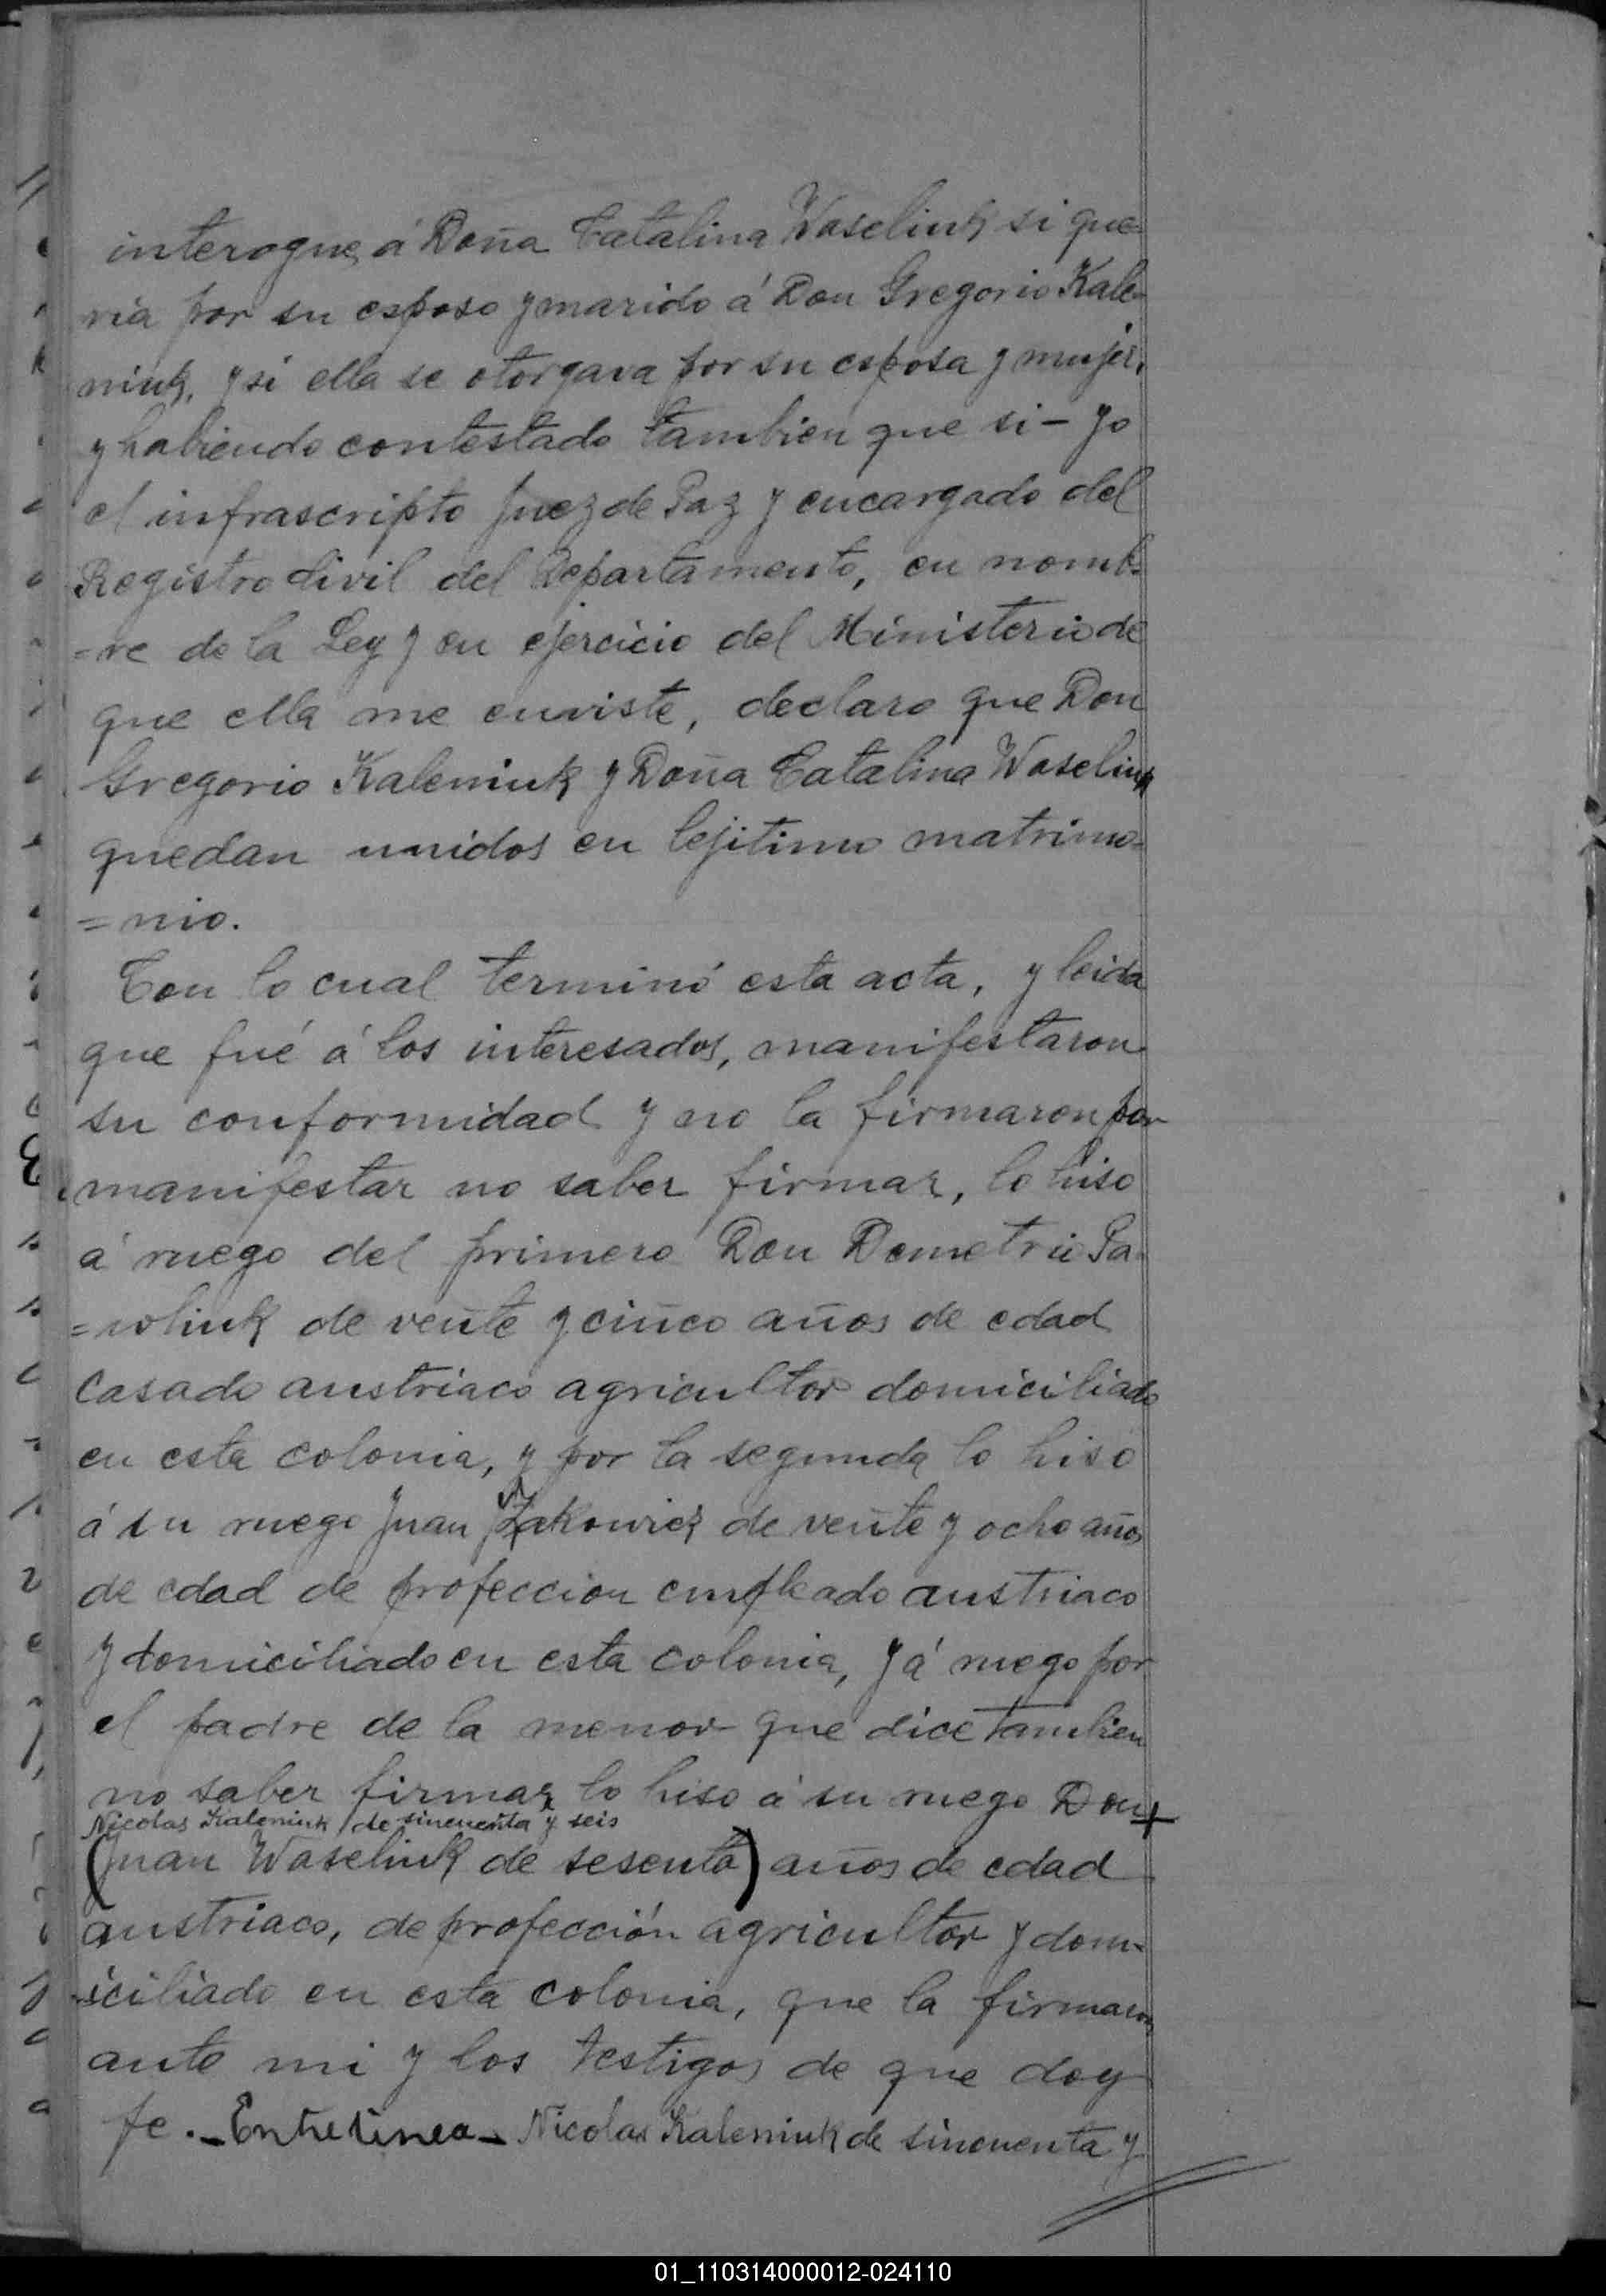 interogue, á Doña Catalina Waseliuk si que-
ria por su esposo y marido á Don Gregorio Kale-
niuk, y si ella se otorgava por su esposa y mujer,
y habiendo contestado tambien que si - yo
el infrascripto Juez de Paz y encargado del
Registro Civil del Departamento, en nomb-
=re de la Ley y en ejercicio del Ministerio de
que ella me enviste, declaro que Don
Gregorio Kaleniuk y Doña Catalina Waseliuk
quedan unidos en lejitimo matrimo-
=nio.
Con lo cual terminó esta acta, y leida
que fué á los interesados, manifestaron
su conformidad y no la firmaron por
manifestar no saber firmar, lo hiso
á ruego del primero Don Demetrio Pa-
=wliuk de veinte y cinco años de edad
casado austriaco agricultor domiciliado
en esta colonia, y por la segunda lo hiso
á su ruego Juan Zakowicz de veinte y ocho años
de edad de profeccion empleado austriaco
y domiciliado en esta colonia, y á ruego por
el padre de la menor que dice tambien
no saber firmar, lo hiso á su ruego Don +
Nicolas Kaleniuk de sincuenta y seis
(Juan Waseliuk de sesenta) años de edad
austriaco, de profección agricultor y dom-
iciliado en esta colonia, que la firmaron
ante mi y los testigos de que doy
fe. - Entrelinea - Nicolas Kaleniuk de sincuenta y
01_110314000012-024110